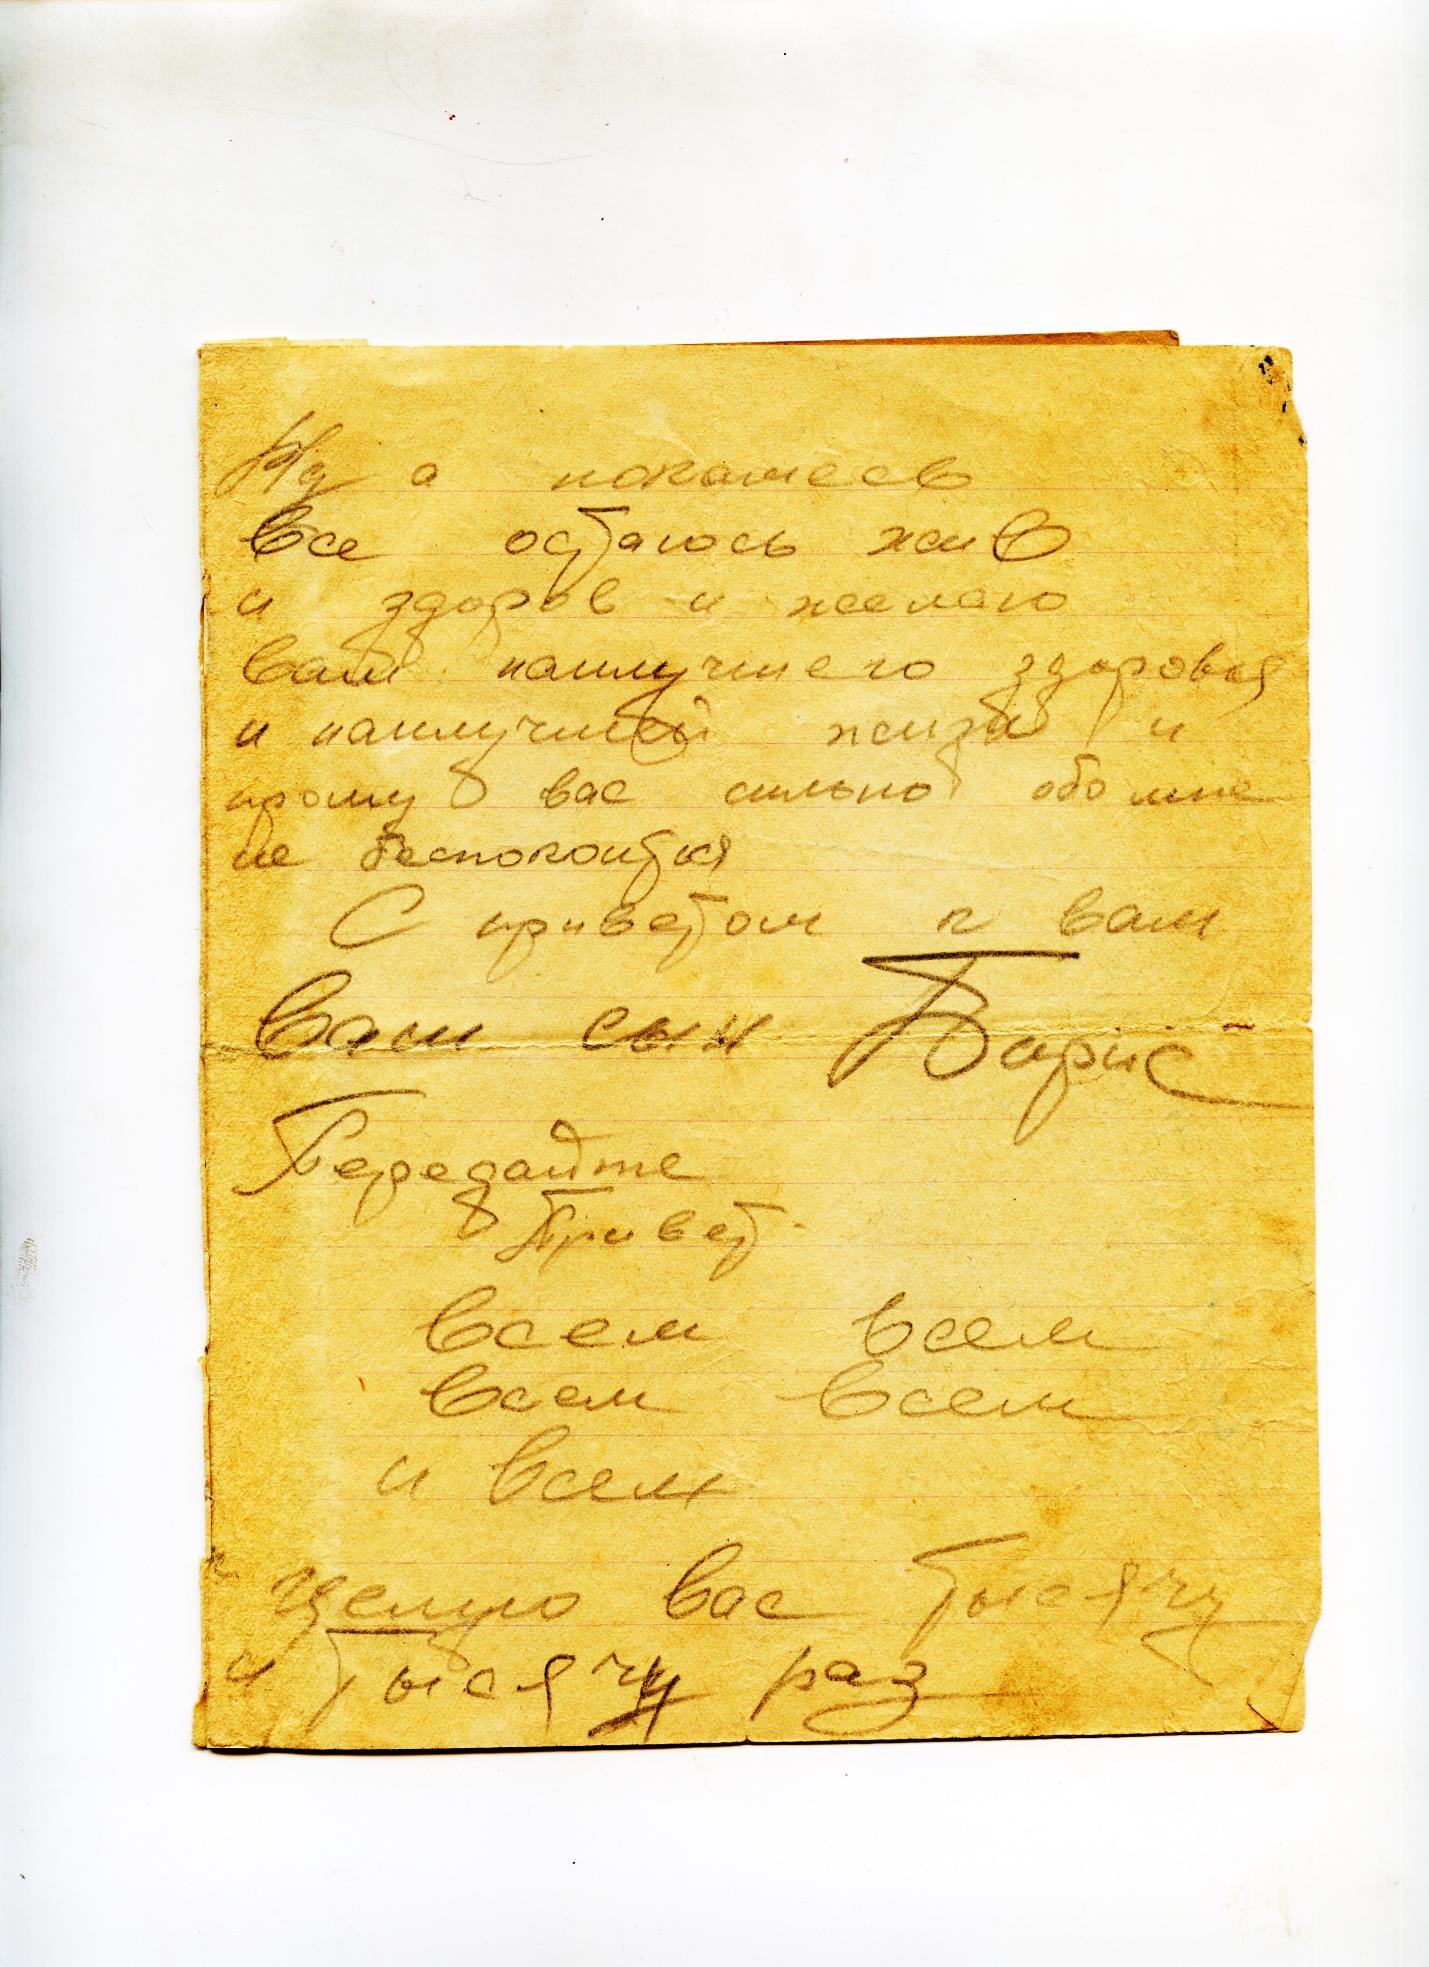 Ну а покамесь
все остаюсь жив
и здоров и желаю
вам наилучшего здоровья
и наилучшей жизни и
прошу вас сильно обо мне
не беспокоится
С приветом к вам
Ваш сын Борис
Передайте
Привет
всем всем
всем всем
и всем
целую вас тысячу
и тысячу раз